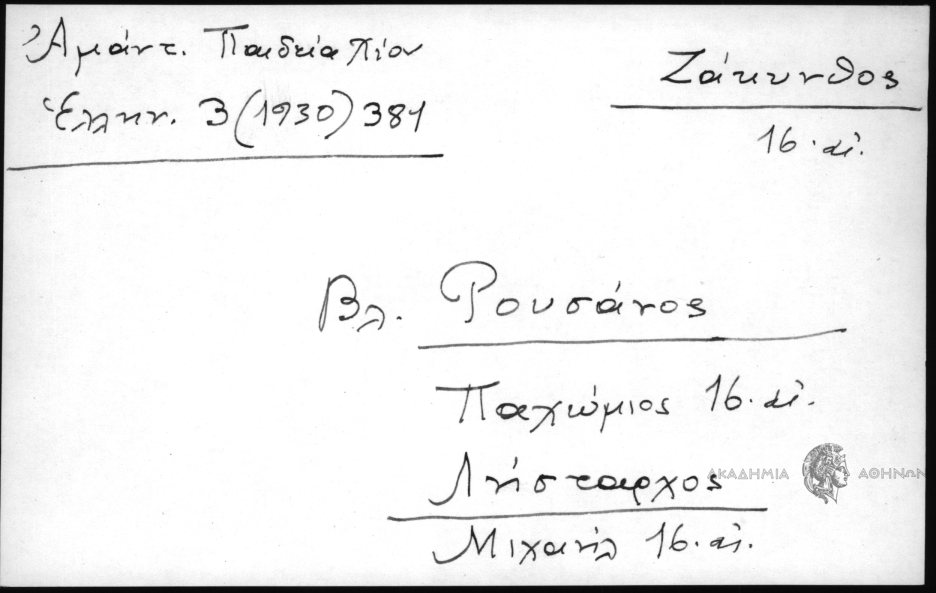 Ἀμάντ. Παιδεία Χίου
Ἑλλην. 3 (1930) 381
Ζάκυνθος
16. αἰ.
Βλ. Ρουσάνος
Παχώμιος 16. αἰ.
Λήσταρχος
ΑΚΑΔΗΜΙΑ ΑΘΗΝΩΝ
Μιχαήλ 16. αἰ.